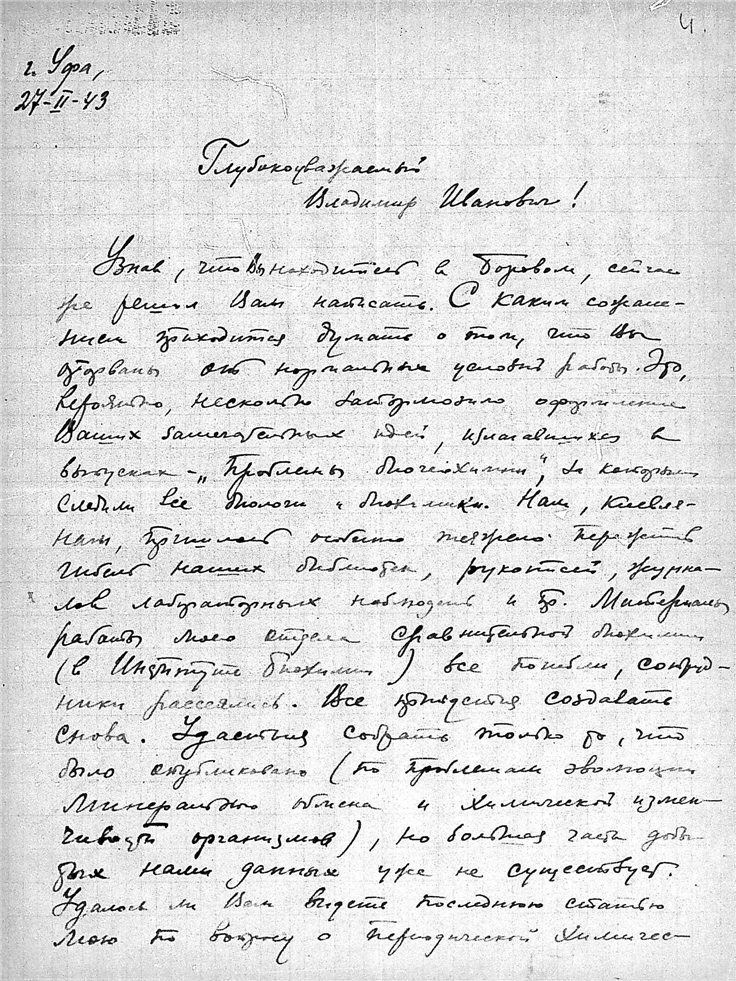 4.
г. Уфа,
27-II-43
Глубокоуважаемый
Владимир Иванович!
Узнав, что Вы находитесь в Боровом, сейчас
же решил Вам написать. С каким сожале-
нием приходится думать о том, что Вы
оторваны от нормальных условий работы. Это,
вероятно, несколько затормозило оформление
Ваших замечательных идей, излагавшихся в
выпусках - „Проблемы биогеохимии", за которыми
следили все биологи и биохимики. Нам, киевля-
нам, пришлось особенно тяжело пережить
гибель наших библиотек, рукописей, журна-
лов лабораторных наблюдений и пр. Материалы
работы моего отдела сравнительной биохимии
(в Институте биохимии) все погибли, сотруд-
ники рассеялись. Все придется создавать
снова. Удастся собрать только то, что
было опубликовано (по проблемам эволюции
минерального обмена и химической измен-
чивости организмов), но большая часть добы-
тых нами данных уже не существует.
Удалось ли Вам видеть последнюю статью
мою по вопросу о периодической химичес-